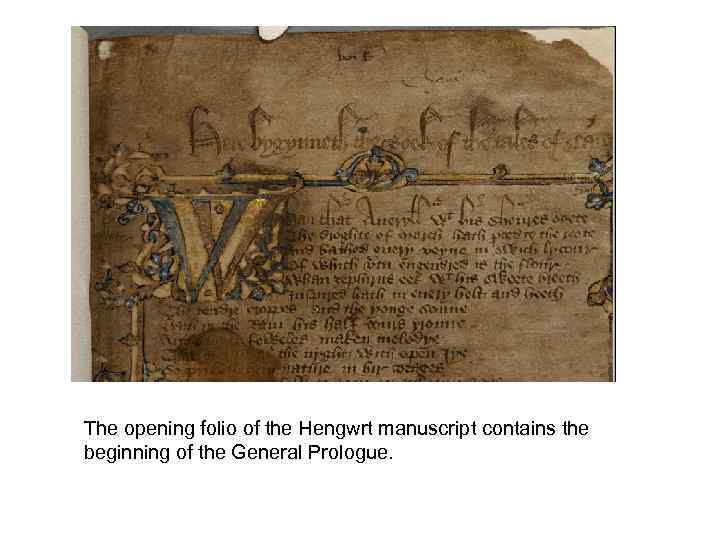 Here bygynneth the Book of the tales of
Whan that Aueryll wt his shoures soote
The droghte of march hath perced to the roote
And bathed euery veyne in swich lycour
Of which vtu engendred is the flour
Whan zephirus eek wt his sweete breeth
Inspired hath in euery holt and heeth
The tendre croppes and the yonge sonne
hath in the Ram his half cours yronne
foweles maken melodye
the nyght with open Iye
nature in hir corages
The opening folio of the Hengwrt manuscript contains the
beginning of the General Prologue.